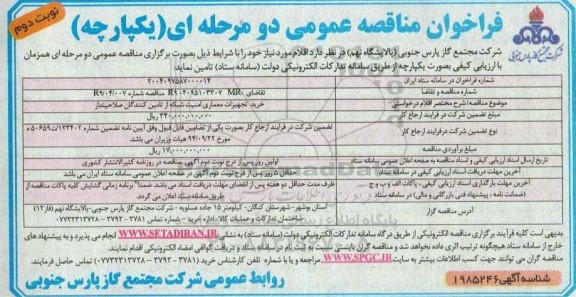 نوبت دوم
فراخوان مناقصه عمومی دو مرحله ای(یکپارچه)
شرکت مجتمع گاز پارس جنوبی
شرکت مجتمع گاز پارس جنوبی (پالایشگاه نهم) در نظر دارد اقلام مورد نیاز خود را با شرایط ذیل بصورت برگزاری مناقصه عمومی دو مرحله ای همزمان
با ارزیابی کیفی بصورت یکپارچه از طریق سامانه تدارکات الکترونیکی دولت (سامانه ستاد) تامین نماید.
شماره فراخوان در سامانه ستاد ایران
شماره مناقصه و تقاضا
تقاضای MR: R9004095103007 مناقصه شماره R904/007
موضوع مناقصه/ شرح مختصر اقلام درخواستی
خرید، تجهیزات معماری امنیت شبکه از تامین کنندگان صلاحیتدار
مبلغ تضمین شرکت در فرایند ارجاع کار
نوع تضمین شرکت درفرایند ارجاع کار
تضمین شرکت در فرایند ارجاع کار بصورت یکی از تضامین قابل قبول وفق آیین نامه تضمین شماره 123402/ت50659ه
مورخ 94/09/22 هیات وزیران می باشد
مبلغ برآوردی مناقصه
17,000,000,000 ریال
تاریخ ارسال اسناد ارزیابی کیفی و اسناد مناقصه به صفحه اعلان عمومی سامانه ستاد
اولین روز پس از درج نوبت دوم آگهی مناقصه در روزنامه کثیرالانتشار کشوری
آخرین مهلت دریافت اسناد ارزیابی کیفی در سامانه ستاد
حداقل 5 روز پس از درج نوبت دوم آگهی در صفحه اعلان عمومی سامانه ستاد ایران می باشد
آخرین مهلت بارگذاری اسناد ارزیابی کیفی، پاکات الف و ب و ج
(ضمانت نامه ، پیشنهاد فنی بازرگانی و مالی) در سامانه ستاد
ظرف مدت حداقل دو هفته پس از انقضای مهلت دریافت اسناد می باشد ضمنا برنامه زمانی گشایش کلیه پاکات مناقصه از
طریق سامانه ستاد اعلان می گردد
آدرس مناقصه گزار
استان بوشهر- شهرستان کنگان- کیلومتر 15 جاده عسلویه - شرکت مجتمع گاز پارس جنوبی-پالایشگاه نهم (فاز12)
ساختمان تدارکات و عملیات کالا- اداره خرید - شماره تماس: 3781 - 3792 - 07732313728
بدیهی است کلیه فرآیند برگزاری مناقصه الکترونیکی از طریق درگاه سامانه تدارکات الکترونیکی دولت (سامانه ستاد) به نشانی WWW.SETADIRAN.IR انجام می پذیرد و به پیشنهاد های
خارج از سامانه ستاد هیچگونه ترتیب اثری داده نخواهد شد و مناقصه گران بایستی نسبت به ثبت نام در سامانه ستاد و دریافت گواهی امضاء الکترونیکی اقدام نمایند.
مناقصه گران می توانند جهت کسب اطلاعات بیشتر به سایت WWW.SPGC.IR مراجعه و یا با شماره تلفن کارشناس خرید (3781 - 3792 - 07732313728) تماس حاصل فرمایند.
شناسه آگهی 1985246
روابط عمومی شرکت مجتمع گاز پارس جنوبی